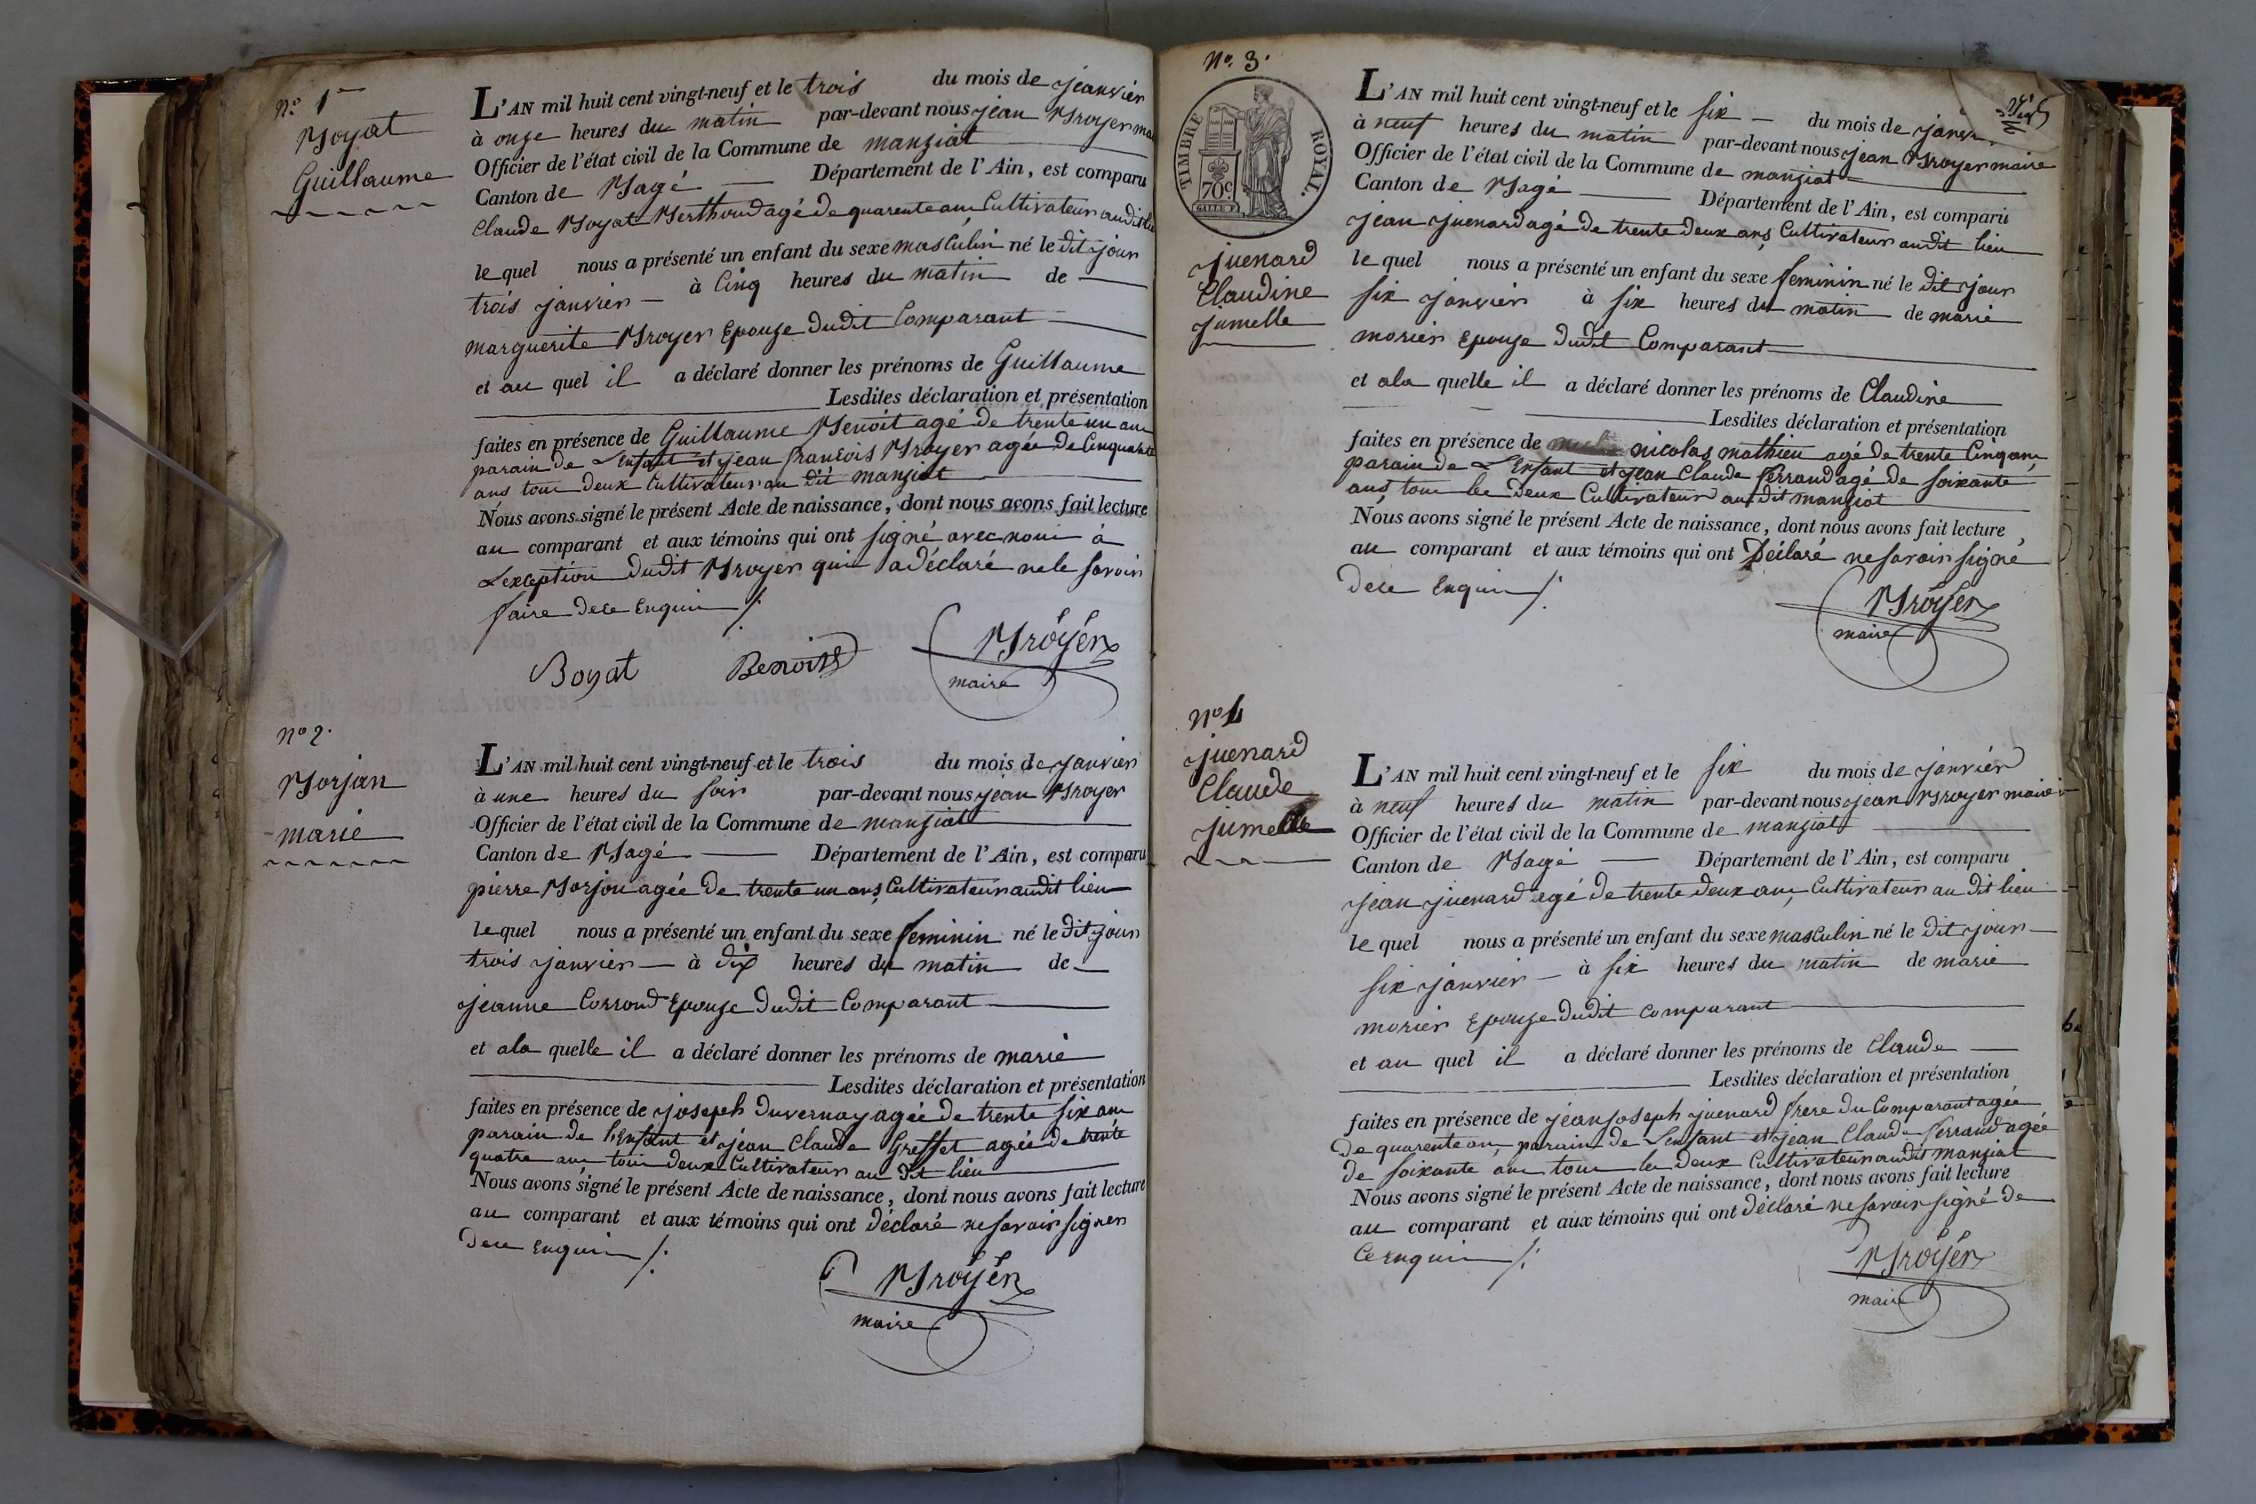 N.º 1er
Boyat
Guillaume
L'AN mil huit cent vingt-neuf et le trois du mois de jeanvier
à onze heures du matin par-devant nous jean Broyer
Officier de l'état civil de la Commune de manziat
Canton de Bagé Département de l'Ain, est comparu
Claude Boyat Berthoud agé de quarente ans Cultivateur audit lieu
le quel nous a présenté un enfant du sexe masculin né le dit jour
trois janvier à Cinq heures du matin de
marguerite Broyer Epouze dudit Comparant
et au quel il a déclaré donner les prénoms de Guillaume
Lesdites déclaration et présentation
faites en présence de Guillaume Benoit agé de trente un ans
parain de L'Enfant et jean francois Broyer agée de Cinquante
ans tous deux Cultivateurs au dit manziat
Nous avons signé le présent Acte de naissance, dont nous avons fait lecture
au comparant et aux témoins qui ont signé avec nous à
L'exception dudit Broyer qui a déclaré ne le savoir
faire de ce Enquis /:
Boyat Benoit Broyer
maire
Nº 2.
Morjan
marie
L'AN mil huit cent vingt-neuf et le trois du mois de janvier
à une heures du soir par-devant nous jean Broyer
Officier de l'état civil de la Commune de manziat
Canton de Bagé Département de l'Ain, est comparu
pierre Morjon agée de trente un ans Cultivateur audit lieu
le quel nous a présenté un enfant du sexe feminin né le dit jour
trois janvier à dix heures du matin de
jeanne Corrond Epouze dudit Comparant
et ala quelle il a déclaré donner les prénoms de marie
Lesdites déclaration et présentation
faites en présence de joseph Duvernay agée de trente six ans
parain de l'Enfant et jean Claude Greffet agée de trente
quatre ans tous deux Cultivateurs au dit lieu
Nous avons signé le présent Acte de naissance, dont nous avons fait lecture
au comparant et aux témoins qui ont déclaré ne savoir signer
de ce enquis /:
Broyer
maire
Nº. 3.
TIMBRE ROYAL.
70c
juenard
Claudine
jumelle
L'AN mil huit cent vingt-neuf et le six du mois de
à neuf heures du matin par-devant nous jean Broyer maire
Officier de l'état civil de la Commune de manziat
Canton de Bagé Département de l'Ain, est comparu
jean juenard agé de trente deux ans Cultivateur audit lieu
le quel nous a présenté un enfant du sexe feminin né le dit jour
six janvier à six heures du matin de marie
morier Epouze dudit Comparant
et ala quelle il a déclaré donner les prénoms de Claudine
Lesdites déclaration et présentation
faites en présence de nicolas mathieu agé de trente Cinq ans
parain de L'Enfant et jean Claude ferrand agé de soixante
ans tous les deux Cultivateurs audit manziat
Nous avons signé le présent Acte de naissance, dont nous avons fait lecture
au comparant et aux témoins qui ont Déclaré ne savoir signé
de ce Enquis /:
Broyer
maire
Nº 4
juenard
Claude
L'AN mil huit cent vingt-neuf et le six du mois de janvier
à neuf heures du matin par-devant nous jean Broyer maire
Officier de l'état civil de la Commune de manziat
Canton de Bagé Département de l'Ain, est comparu
jean juenard agé de trente deux ans Cultivateur au dit lieu
le quel nous a présenté un enfant du sexe masculin né le dit jour
six janvier à six heures du matin de marie
morier Epouze dudit comparant
et au quel il a déclaré donner les prénoms de Claude
Lesdites déclaration et présentation
faites en présence de jean joseph juenard frere du Comparant agée
de quarente ans, parain de L'enfant et jean Claude ferrand agée
de soixante ans tous les deux Cultivateurs audit manziat
Nous avons signé le présent Acte de naissance, dont nous avons fait lecture
au comparant et aux témoins qui ont déclaré ne savoir signé de
Ce enquis /:
Broyer
maire